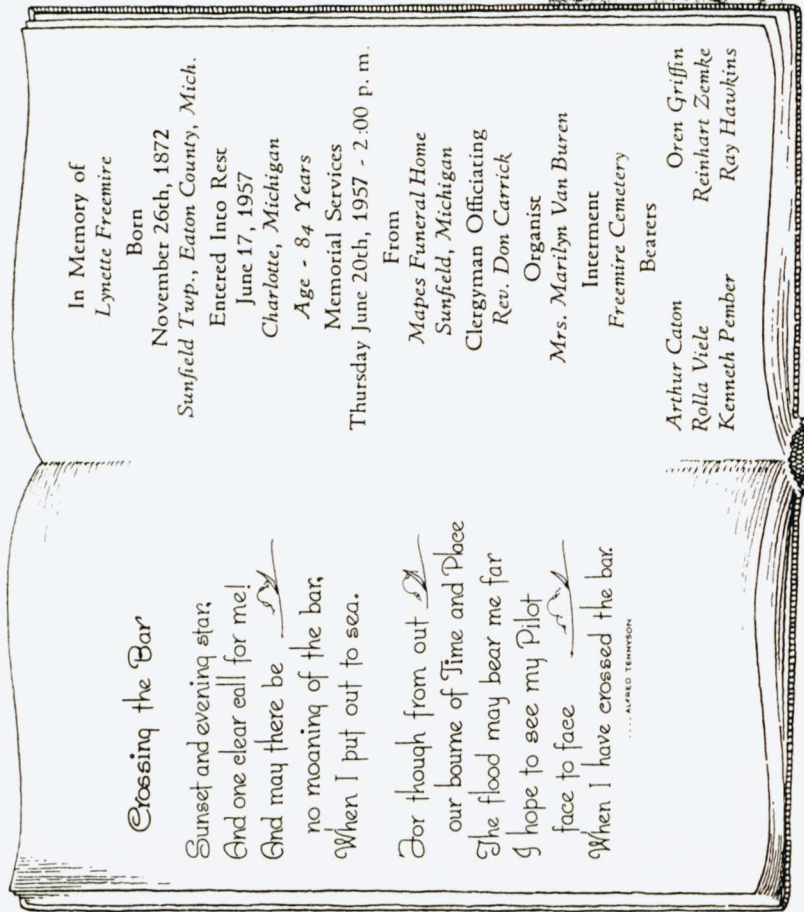 Crossing the Bar
Sunset and evening star,
And one clear call for me!
And may there be
no moaning of the bar,
When I put out to sea.
For though from out
our bourne of Time and Place
The flood may bear me far
I hope to see my Pilot
face to face
When I have crossed the bar.
....ALFRED TENNYSON
In Memory of
Lynette Freemire
Born
November 26th, 1872
Sunfield Twp., Eaton County, Mich.
Entered Into Rest
June 17, 1957
Charlotte, Michigan
Age - 84 Years
Memorial Services
Thursday June 20th, 1957 - 2:00 p. m.
From
Mapes Funeral Home
Sunfield, Michigan
Clergyman Officiating
Rev. Don Carrick
Organist
Mrs. Marilyn Van Buren
Interment
Freemire Cemetery
Bearers
Arthur Caton Oren Griffin
Rolla Viele Reinhart Zemke
Kenneth Pember Ray Hawkins